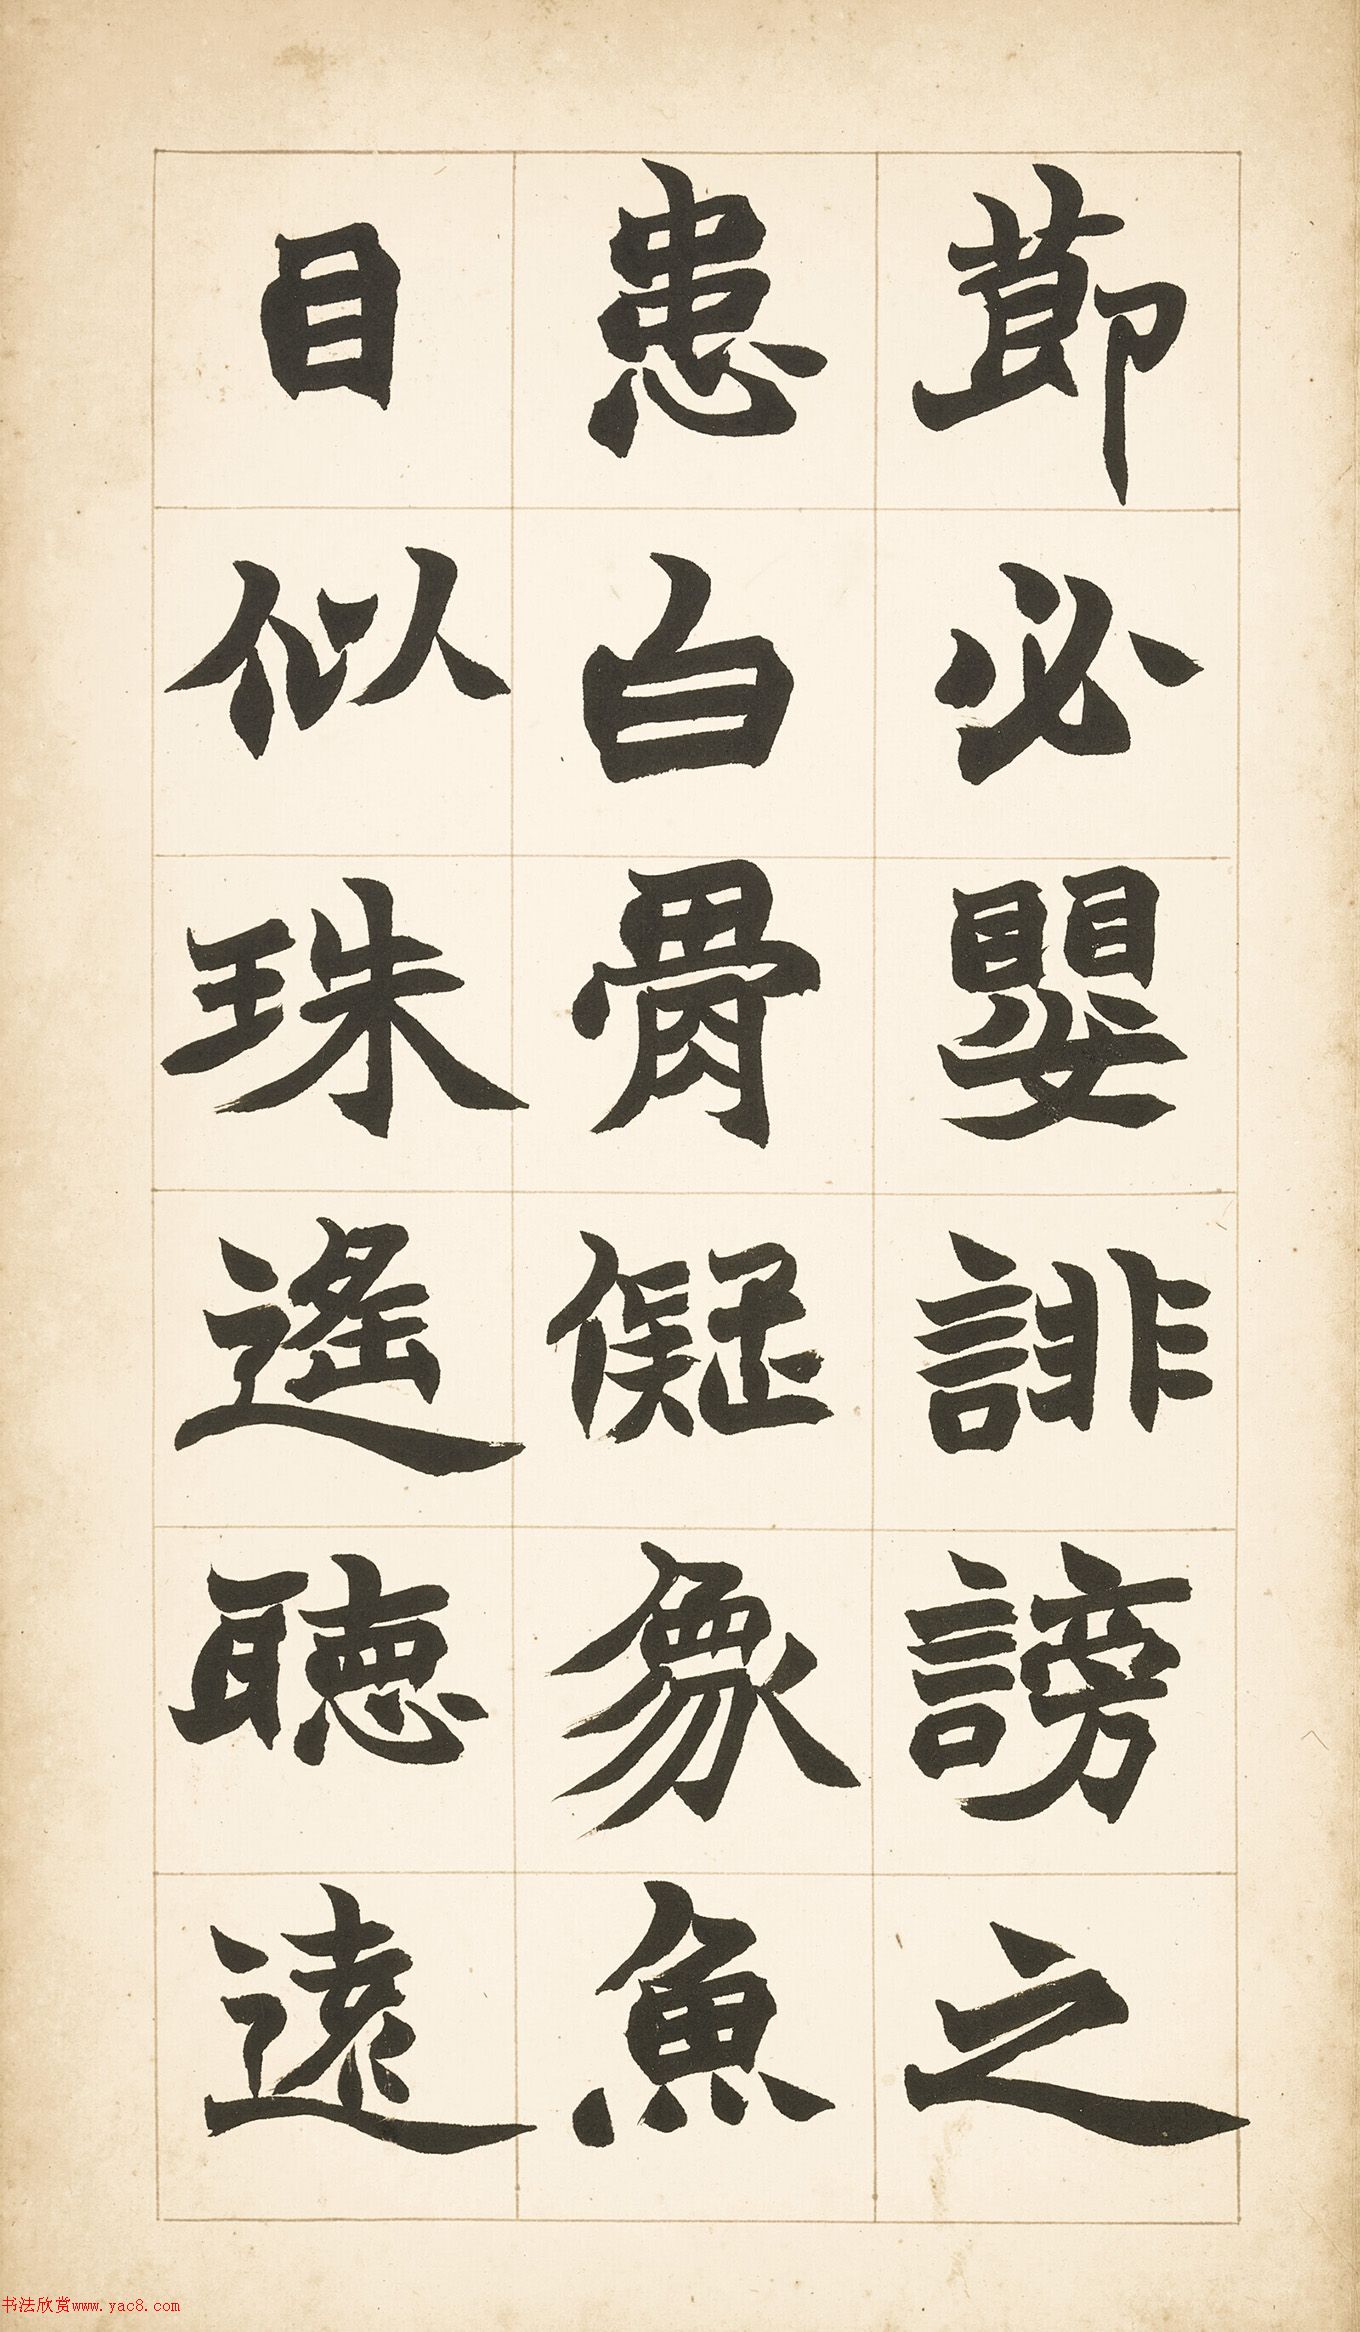 節必嬰誹謗之
患白骨儗象魚
目似珠遙聽遠
书法欣赏www.yac8.com